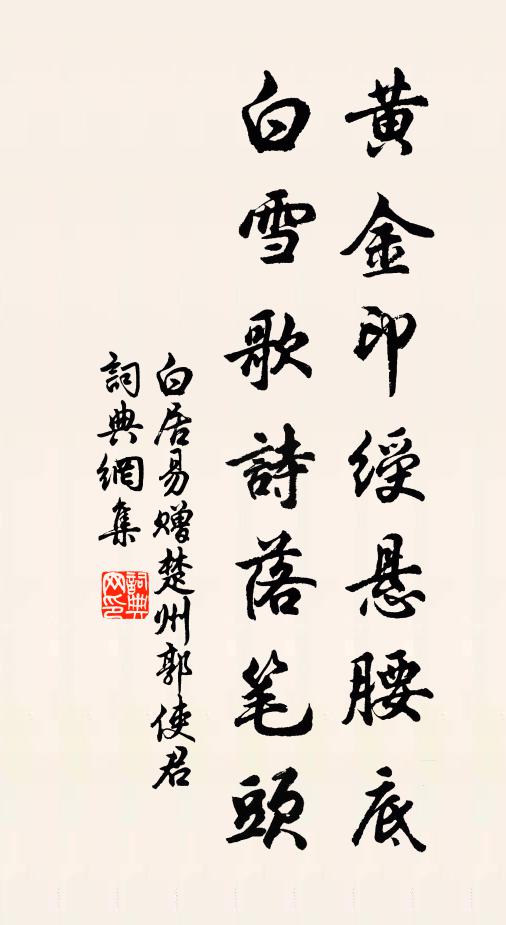 黄金印綬悬腰底
白雪歌詩落笔頭
白居易赠楚州郭使君
詞典網集
詞典网印